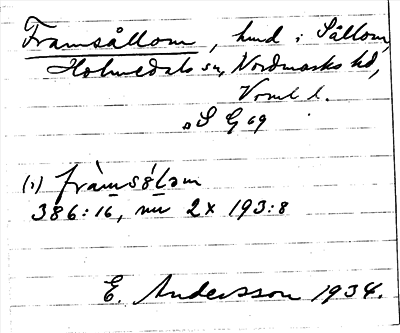 Framsållom, hmd i Sållom,
Holmedals sn, Nordmarks hd,
Vrml l.
S G 69
(1) fràmsó̀lɔm
386:16, nu 2x 193:8
E. Andersson 1934.